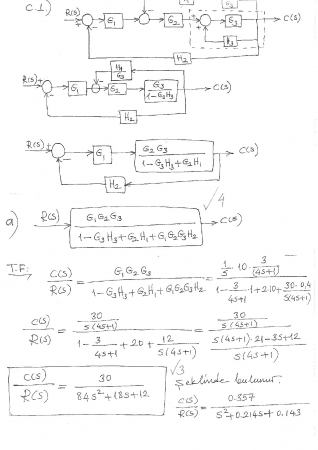 C.1)
R(s) + - G₁ - G₂ + + G₃ C(s)
H₃
H₂
R(s) + - G₁ - G₂ G₃/(1-G₃H₃) C(s)
H₁/G₃
H₂
R(s) + - G₁ G₂G₃/(1-G₃H₃+G₂H₁) C(s)
H₂
√4
a) R(s) G₁G₂G₃/(1-G₃H₃+G₂H₁+G₁G₂G₃H₂) C(s)
T.F; C(s)/R(s) = G₁G₂G₃/(1-G₃H₃+G₂H₁+G₁G₂G₃H₂) = (1/s · 10 · 3/(4s+1))/(1-3/(4s+1)·1+2·10+30·0,4/(s(4s+1)))
C(s)/R(s) = (30/(s(4s+1)))/(1-3/(4s+1)+20+12/(s(4s+1))) = (30/(s(4s+1)))/((s(4s+1)·21-3s+12)/(s(4s+1)))
√3
C(s)/R(s) = 30/(84s²+18s+12) Şeklinde bulunur.
C(s)/R(s) = 0.357/(s²+0.214s+0.143)